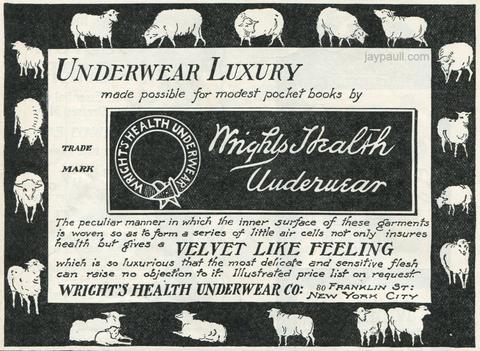 jaypaull.com
UNDERWEAR LUXURY
made possible for modest pocket books by
TRADE
MARK
WRIGHT'S HEALTH UNDERWEAR
Wrights Health
Underwear
The peculiar manner in which the inner surface of these garments
is woven so as to form a series of little air cells not only insures
health but gives a VELVET LIKE FEELING
which is so luxurious that the most delicate and sensitive flesh
can raise no objection to it. Illustrated price list on request
WRIGHT'S HEALTH UNDERWEAR CO: 80 FRANKLIN ST:
NEW YORK CITY